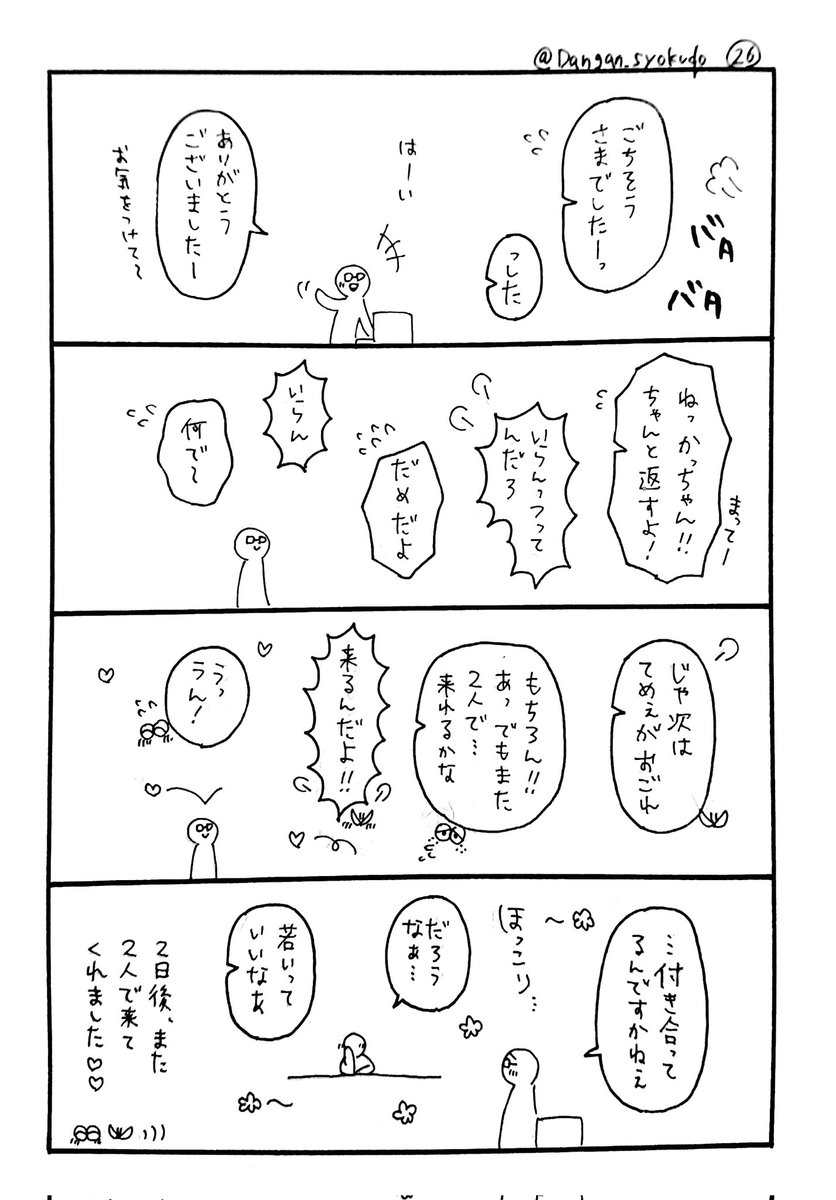 @Dangan_syokudo 26
バタ
バタ
ごちそう
さまでしたーっ
っした
はーい
ありがとう
ございましたー
お気をつけて〜
ねっかっちゃん!!
ちゃんと返すよ!
まってー
いらんっつって
んだろ
だめだよ
いらん
何で〜
じゃ次は
てめぇがおごれ
もちろん!!
あっでもまた
2人で…
来れるかな
来るんだよ!!
うっ
うん!
…付き合って
るんですかねぇ
ほっこり…
だろう
なぁ…
若いって
いいなあ
2日後、また
2人で来て
くれました♡♡